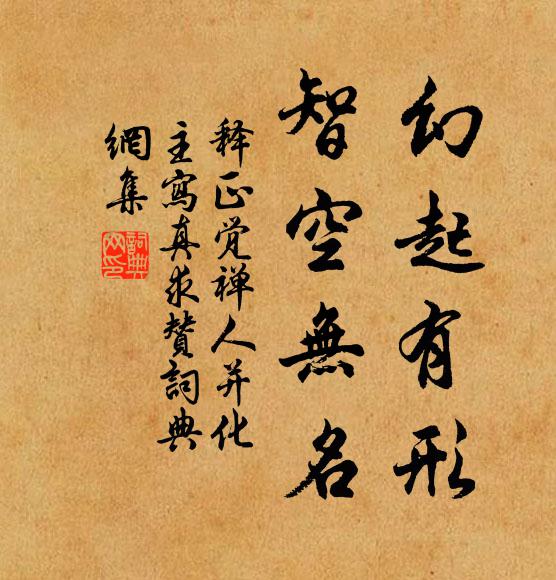 幻起有形
智空無名
释正觉禅人并化
主寫真求贊詞典
網集
詞典網印